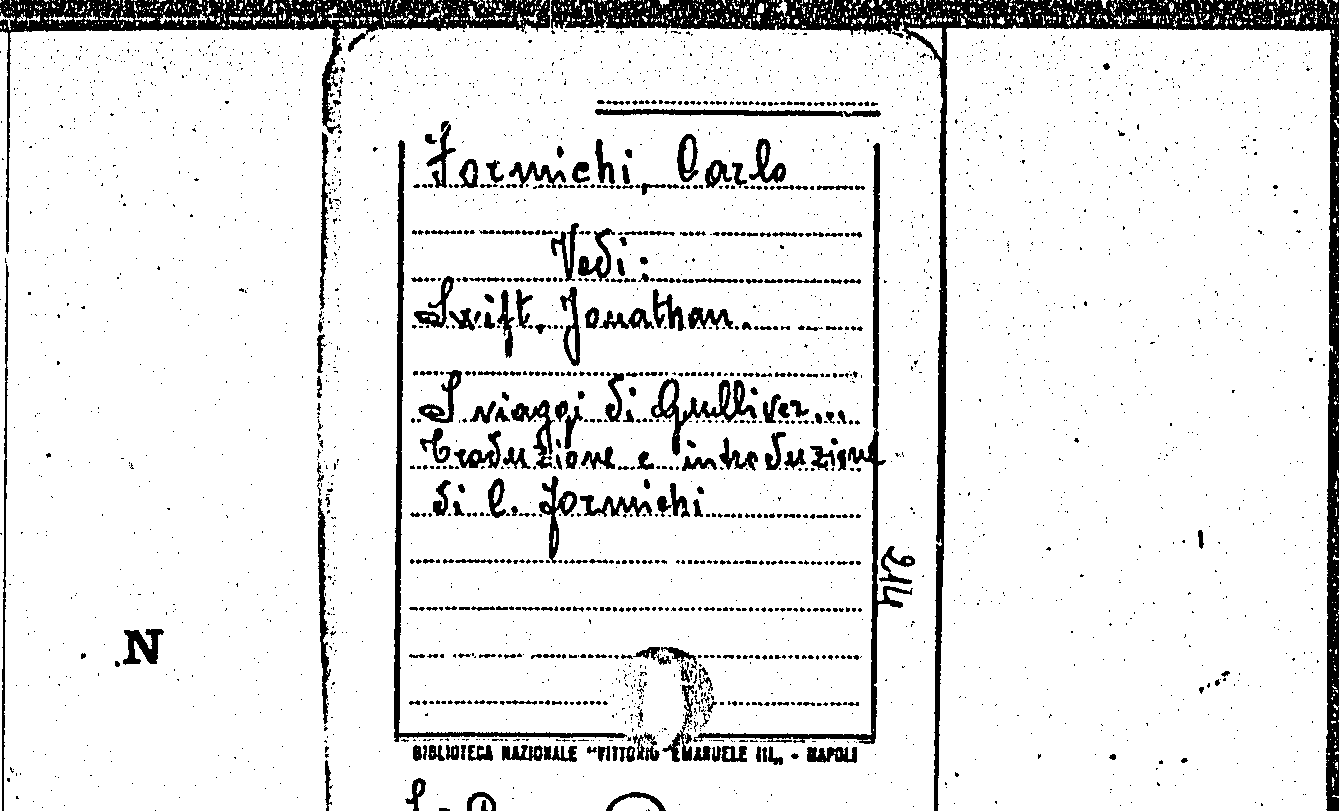 Formichi, Carlo
Vedi:
Swift, Jonathan.
I viaggi di Gulliver...
Traduzione e introduzione
di C. Formichi
214
N
BIBLIOTECA NAZIONALE "VITTORIO EMANUELE III„ - NAPOLI